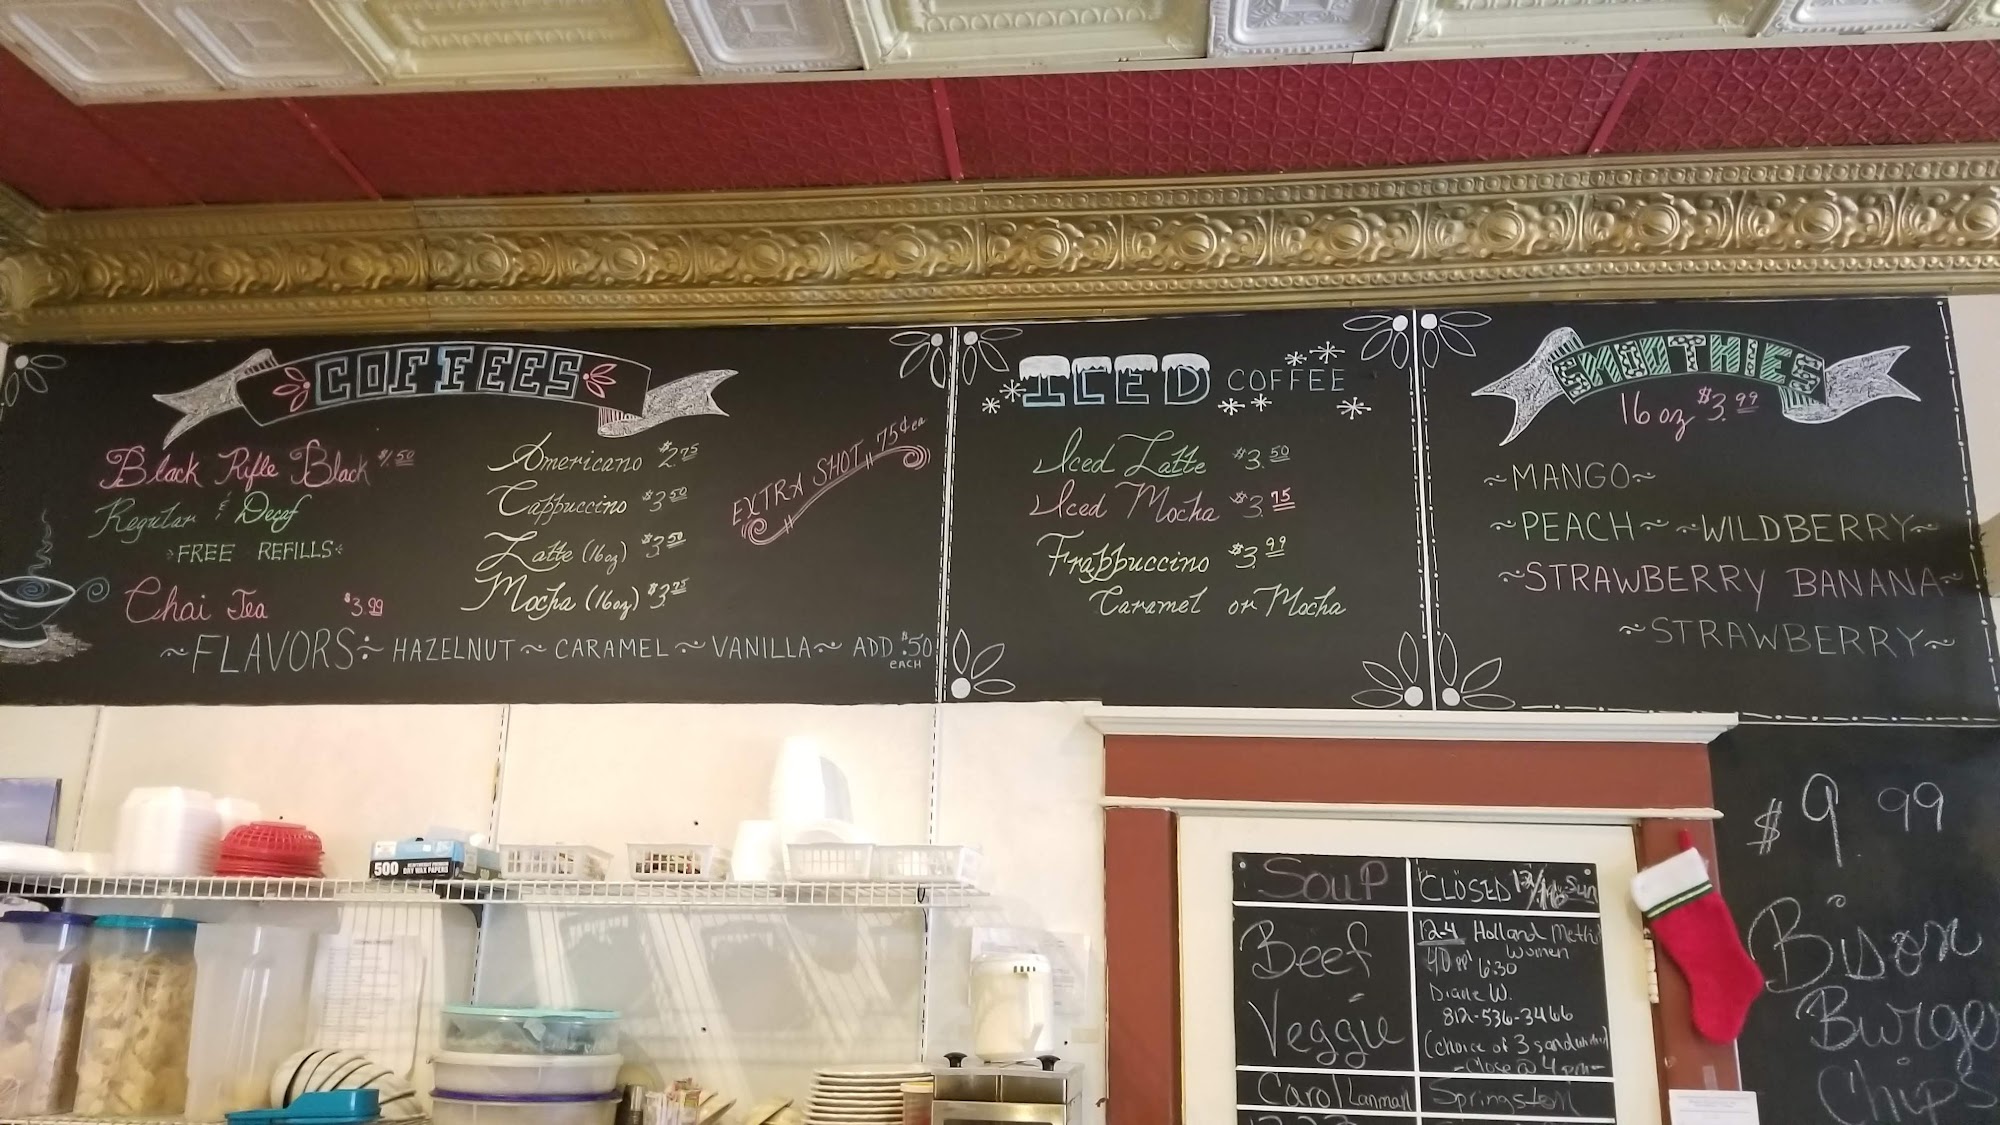 COFFEES
Black Rifle Black $1.50
Regular & Decaf
FREE REFILLS
Chai Tea $3.99
Americano $2.75
Cappuccino $3.50
Latte (16oz) $3.50
Mocha (16oz) $3.75
EXTRA SHOT 75¢ ea
~FLAVORS: HAZELNUT ~ CARAMEL ~ VANILLA ~ ADD $.50
EACH
ICED COFFEE
Iced Latte $3.50
Iced Mocha $3.75
Frappuccino $3.99
Caramel or Mocha
SMOOTHIES
16 oz $3.99
~MANGO~
~PEACH~ ~WILDBERRY~
~STRAWBERRY BANANA~
~STRAWBERRY~
500
DRY WAX PAPERS
Soup
Beef
Veggie
Carol Lanman
CLOSED
12-4 Holland
Women
6:30
Diane W.
812-536-3466
(choice of 3
-Close @ 4pm-
$9 99
Bison
Burger
Chips